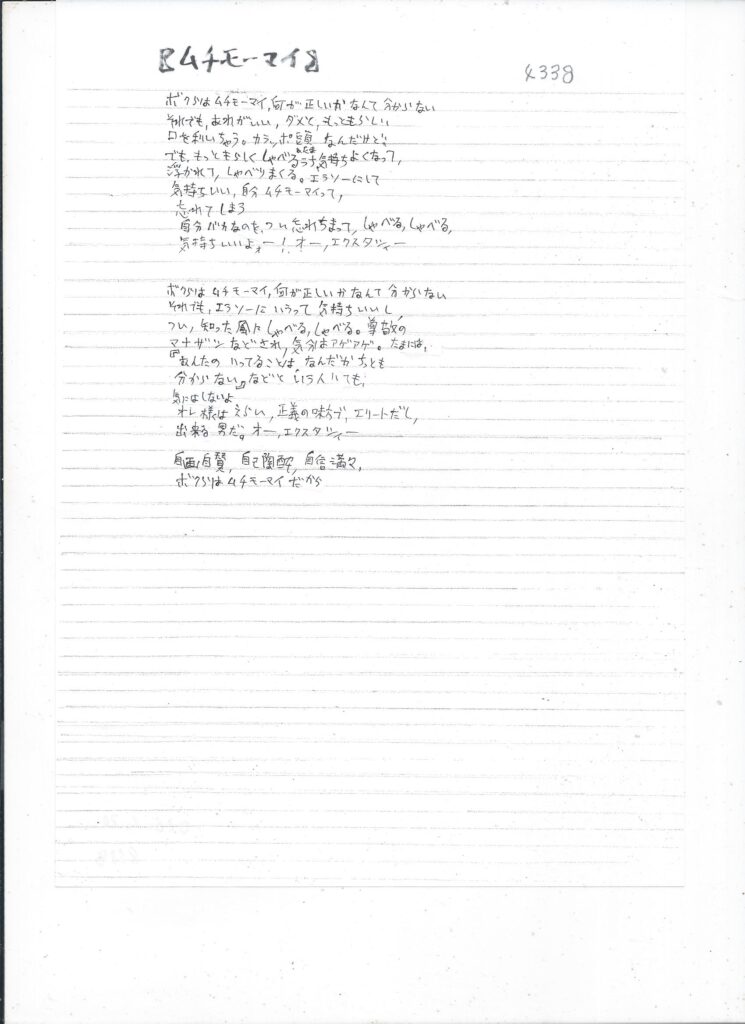 【ムチモーマイ】
4338
ボクらはムチモーマイ,何が正しいかなんて分からない
それでも,あれがいい,ダメと,もっともらしい
口を利いちゃう。カラッポ頭なんだけど,
あたま
でも,もっともらしくしゃべるうち,気持ちよくなって,
浮かれて,しゃべりまくる。エラソーにして
気持ちいい,自分ムチモーマイって,
忘れてしまう
自分がバカなのを,つい忘れちまって,しゃべる,しゃべる,
気持ちいいよォー!オー,エクスタシィー
ボクらはムチモーマイ,何が正しいかなんて分からない
それでも,エラソーにいうって気持ちいいし,
つい,知った風にしゃべる,しゃべる。尊敬の
マナザシなどされ,気分はアゲアゲ。たまには,
『あんたのいってることはなんだかちとも
分からない』などという人いても,
気にはしないよ
オレ様はえらい,正義の味方で,エリートだし,
出来る男だ。オー,エクスタシィー
自画自賛,自己陶酔,自信満々,
ボクらはムチモーマイだから